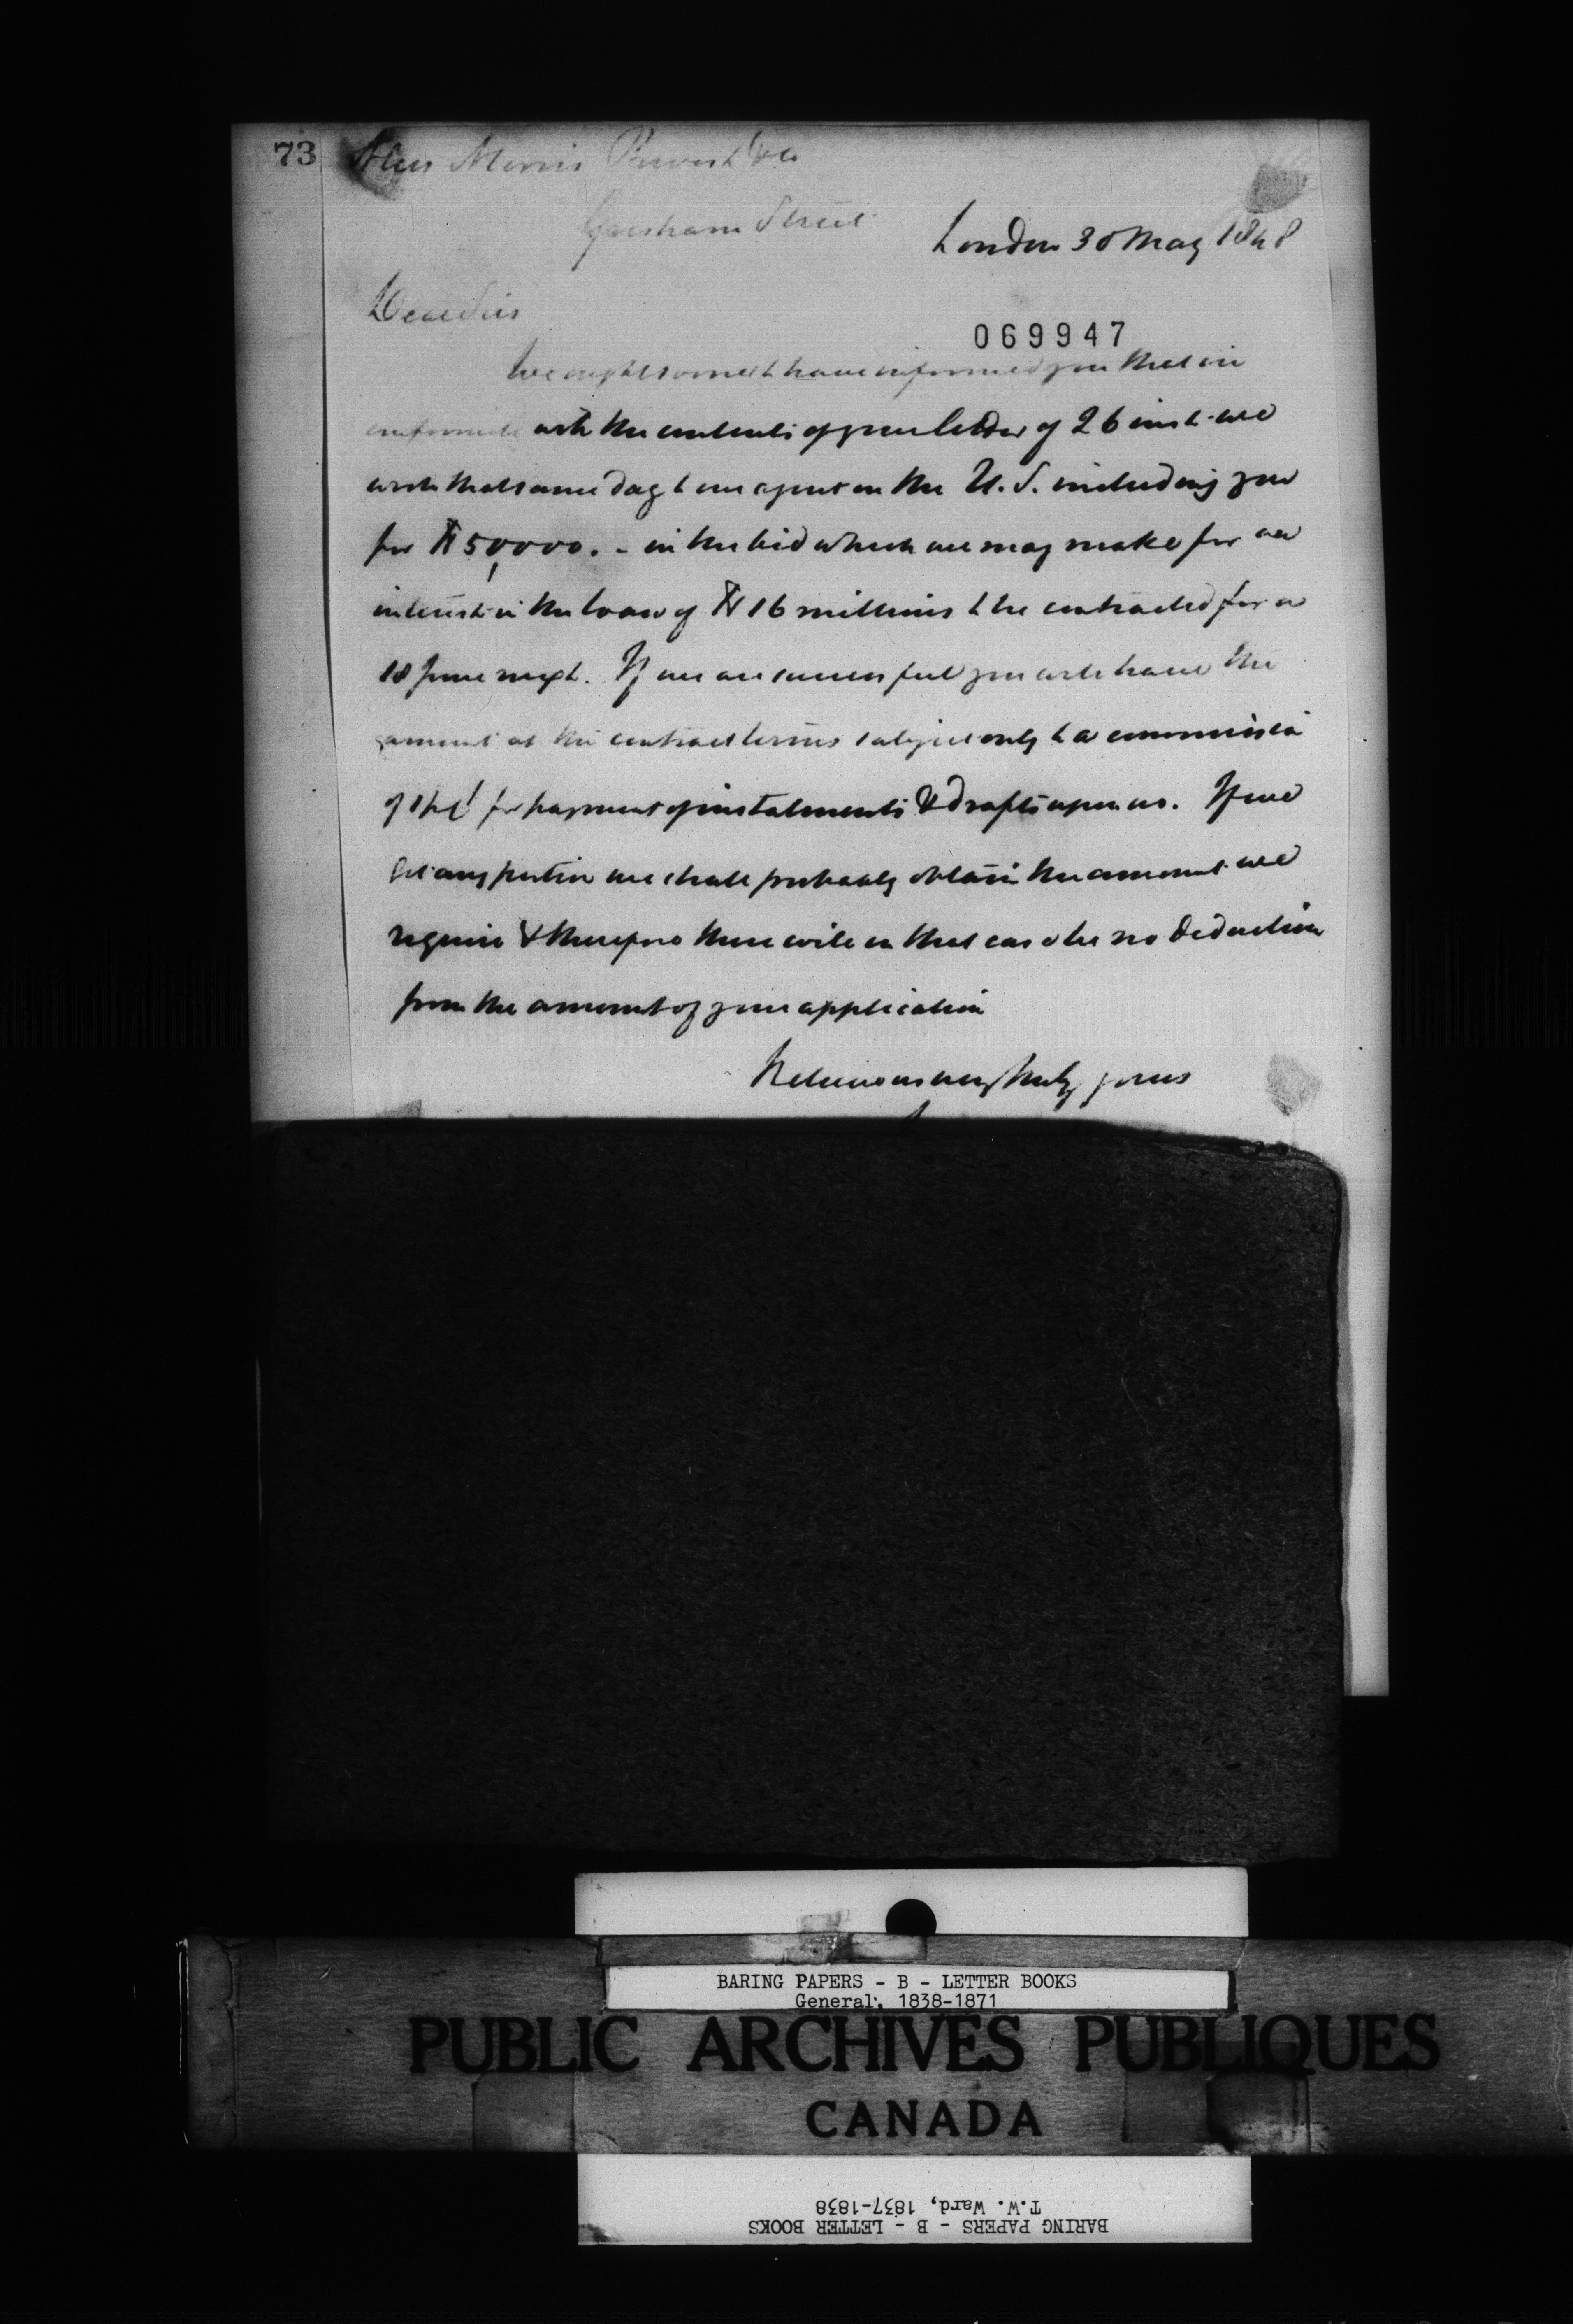 73
Messrs Morris Prevost & Co
Gresham Street
London 30 May 1848
Dear Sirs
069947
We ought to have informed you that in
conformity with the contents of your letter of 26 inst. we
wrote that same day to our agent in the U.S. including you
for $50,000. - in the bid which we may make for an
interest in the loan of $16 millions to be contracted for on
18 June next. If we are successful you will have the
amount at the contract terms subject only to a commission
of 1 pCt for payment of instalments & drafts upon us. If we
get any portion we shall probably obtain the amount we
require & therefore there will in that case be no deduction
from the amount of your application
Believe us very truly yours
BARING PAPERS - B - LETTER BOOKS
General, 1838-1871
PUBLIC ARCHIVES PUBLIQUES
CANADA
BARING PAPERS - B - LETTER BOOKS
T.W. Ward, 1837-1838